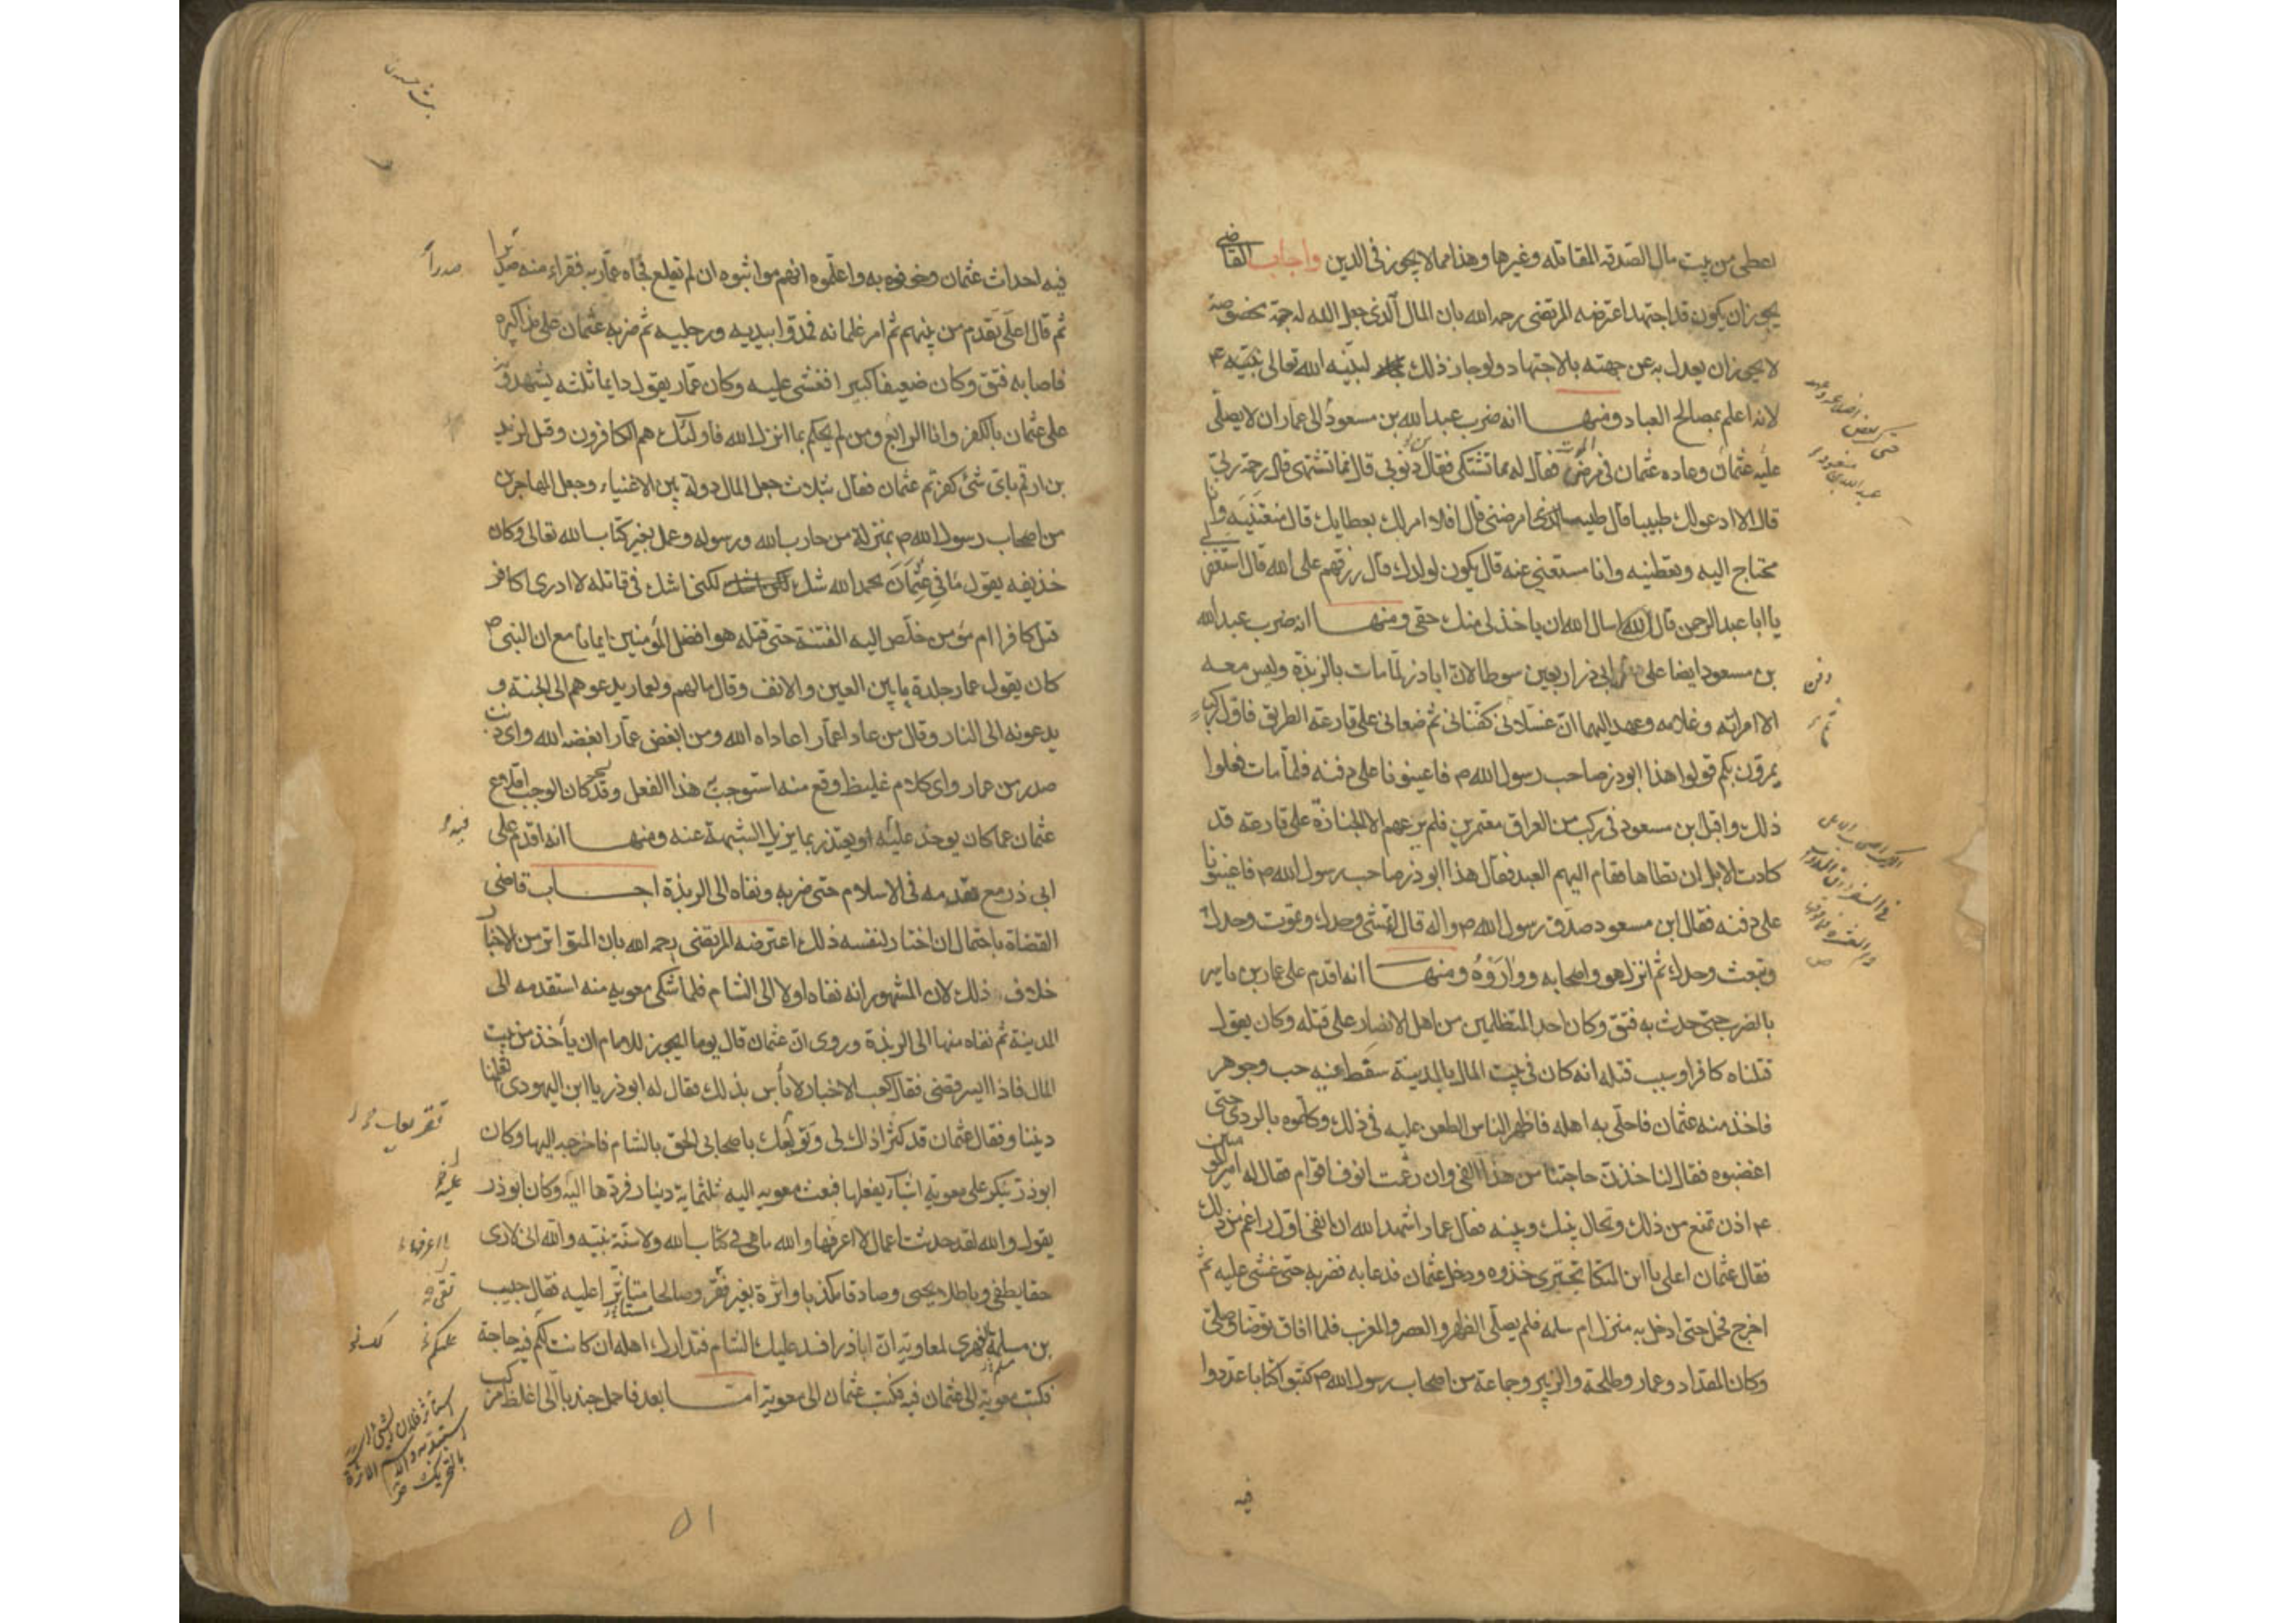 اعطى من بيت مال الصدقة المقاتلة وغيرها وهذا مما لا يجوز فى الدين واجاب القاضى
يجوز ان يكون قد اجتهد اعترضه المرتضى رحمه الله بان المال الذى جعل الله له جهة مخصوصة
لا يجوز ان يعدل به عن جهته بالاجتهاد ولو جاز ذلك لبينه الله تعالى نبيه ع
لانه اعلم بمصالح العباد ومنها انه ضرب عبد الله بن مسعود الى عمار ان لا يصلى
عليه عثمان وعاده عثمان فى مرض الموت فقال له مما تشتكى فقال ذنوبى قال فما تشتهى قال رحمة ربى
قال الا ادعو لك طبيبا قال طبيب الذى امرضنى قال افلا امر لك بعطايك قال منعتنيه وانا
محتاج اليه وتعطنيه وانا مستغنى عنه قال يكون لولدك قال رزقهم على الله قال استغفر لى
يا ابا عبد الرحمن قال اسال الله ان ياخذ لى منك حقى ومنها انه ضرب عبد الله
بن مسعود ايضا على دفن ابى ذر اربعين سوطا لان اباذر لما مات بالربذة وليس معه
الا امراته وغلامه وعهد اليهما ان غسلانى كفنانى ثم ضعانى على قارعة الطريق فاول ركب
يمرون بكم قولوا هذا ابوذر صاحب رسول الله ص فاعينونا على دفنه فلما مات فعلوا
ذلك واقبل ابن مسعود فى ركب من العراق معتمرين فلم يرعهم الا الجنازة على قارعة قد
كادت الابل ان تطاها فقام اليهم العبد فقال هذا ابو ذر صاحب رسول الله ص فاعينونا
على دفنه فقال ابن مسعود صدق رسول الله ص واله قال تمشى وحدك وتموت وحدك
وتبعث وحدك ثم انزل هو واصحابه وواروه ومنها انه اقدم على عمار بن ياسر
بالضرب حتى حدث به فتق وكان احد المتظلمين من اهل الانصار على قتله وكان يقول
قتلناه كافرا وسبب قتله انه كان فى بيت المال بالمدينة سقط فيه حب وجوهر
فاخذ منه عثمان فاحلى به اهله فاظهر الناس الطعن عليه فى ذلك وكلموه بالردى حتى
اغضبوه فقال لناخذن حاجتنا من هذا الفئ وان رغمت انوف اقوام فقال له امير المؤمنين
ع اذن تمنع من ذلك وتحال بينك وبينه فقال عمار اشهد الله ان انفى اول راغم من ذلك
فقال عثمان اعلى يا ابن المتكا تجترى خذوه ودخل عثمان فدعا به فضربه حتى غشى عليه ثم
اخرج فحمل حتى ادخل به منزل ام سلمه فلم يصلى الظهر والعصر والمغرب فلما افاق توضا وصلى
وكان المقداد وعمار وطلحة والزبير وجماعة من اصحاب رسول الله ص كتبوا كتابا عددوا
فيه
دفن
فيه احداث عثمان وخوفوه به واعلموه انهم مواثبوه ان لم يقلع فجاه عمار به فقراء منه صدرا
ثم قال اعلى تقدم من بينهم ثم امر غلمانه فمدوا بيديه ورجليه ثم ضربه عثمان على مذاكيره
فاصابه فتق وكان ضعيفا كبيرا فغشى عليه وكان عمار يقول دايما ثلثه يشهدون
على عثمان بالكفر وانا الرابع ومن لم يحكم بما انزل الله فاولئك هم الكافرون وقيل لزيد
بن ارقم باى شئ كفرتم عثمان فقال بثلاث جعل المال دولة بين الاغنياء وجعل المهاجرين
من اصحاب رسول الله ص بمنزلة من حارب الله ورسوله وعمل بغير كتاب الله تعالى وكان
حذيفه يقول ما فى عثمان بحمد الله شك لكنى اشك فى قاتله لا ادرى اكافر
قتل كافرا ام مؤمن خلص اليه الفتنة حتى قتله هو افضل المؤمنين ايمانا مع ان النبى ص
كان يقول عمار جلدة ما بين العين والانف وقال مالهم ولعمار يدعوهم الى الجنة و
يدعونه الى النار وقال من عادا عمار اعاداه الله ومن ابغض عمارا ابغضه الله واى ذنب
صدر من عمار واى كلام غليظ وقع منه استوجب به هذا الفعل وقد كان الوجب اقلاع
عثمان عما كان يوخذ عليه او يعتذر بما يزيل الشبهة عنه ومنها انه اقدم على
ابى ذر مع تقدمه فى الاسلام حتى ضربه ونفاه الى الربذة اجاب قاضى
القضاة باحتمال ان اختار لنفسه ذلك اعترضه المرتضى رحمه الله بان المتواتر من الاخبار
خلاف ذلك لان المشهور انه نفاه اولا الى الشام فلما شكى معويه منه استقدمه الى
المدينة ثم نفاه منها الى الربذة وروى ان عثمان قال يوما ايجوز للامام ان يأخذ من بيت
المال فاذا ايسر قضى فقال كعب الاخبار لا بأس بذلك فقال له ابوذر يا ابن اليهودى اتعلمنا
ديننا وفقال عثمان قد كثر اذاك لى وتولعك باصحابى الحق بالشام فاخرجه اليها وكان
ابوذر ينكر على معوية اشياء يفعلها فبعث معويه اليه ثلثماية دينار فردها اليه وكان ابوذر
يقول والله لقد حدثت اعمال لا اعرفها والله ما هى فى كتاب الله ولا سنة نبيه والله انى لارى
حقا يطفى وباطلا يحيى وصادقا مكذبا واثرة بغير تقى وصالحا مستاثرا عليه فقال حبيب
بن مسلمة الفهرى لمعاوية ان اباذر افسد عليك الشام فتدارك اهله ان كانت لكم فيه حاجة
فكتب معوية الى عثمان فيه فكتب عثمان الى معوية اما بعد فاحمل جندبا الى اغلظ مركب
صدرا
فيه
عليه
استاثر فلان بالشئ اى استبد به والاسم الاثرة بالتحريك
٥١